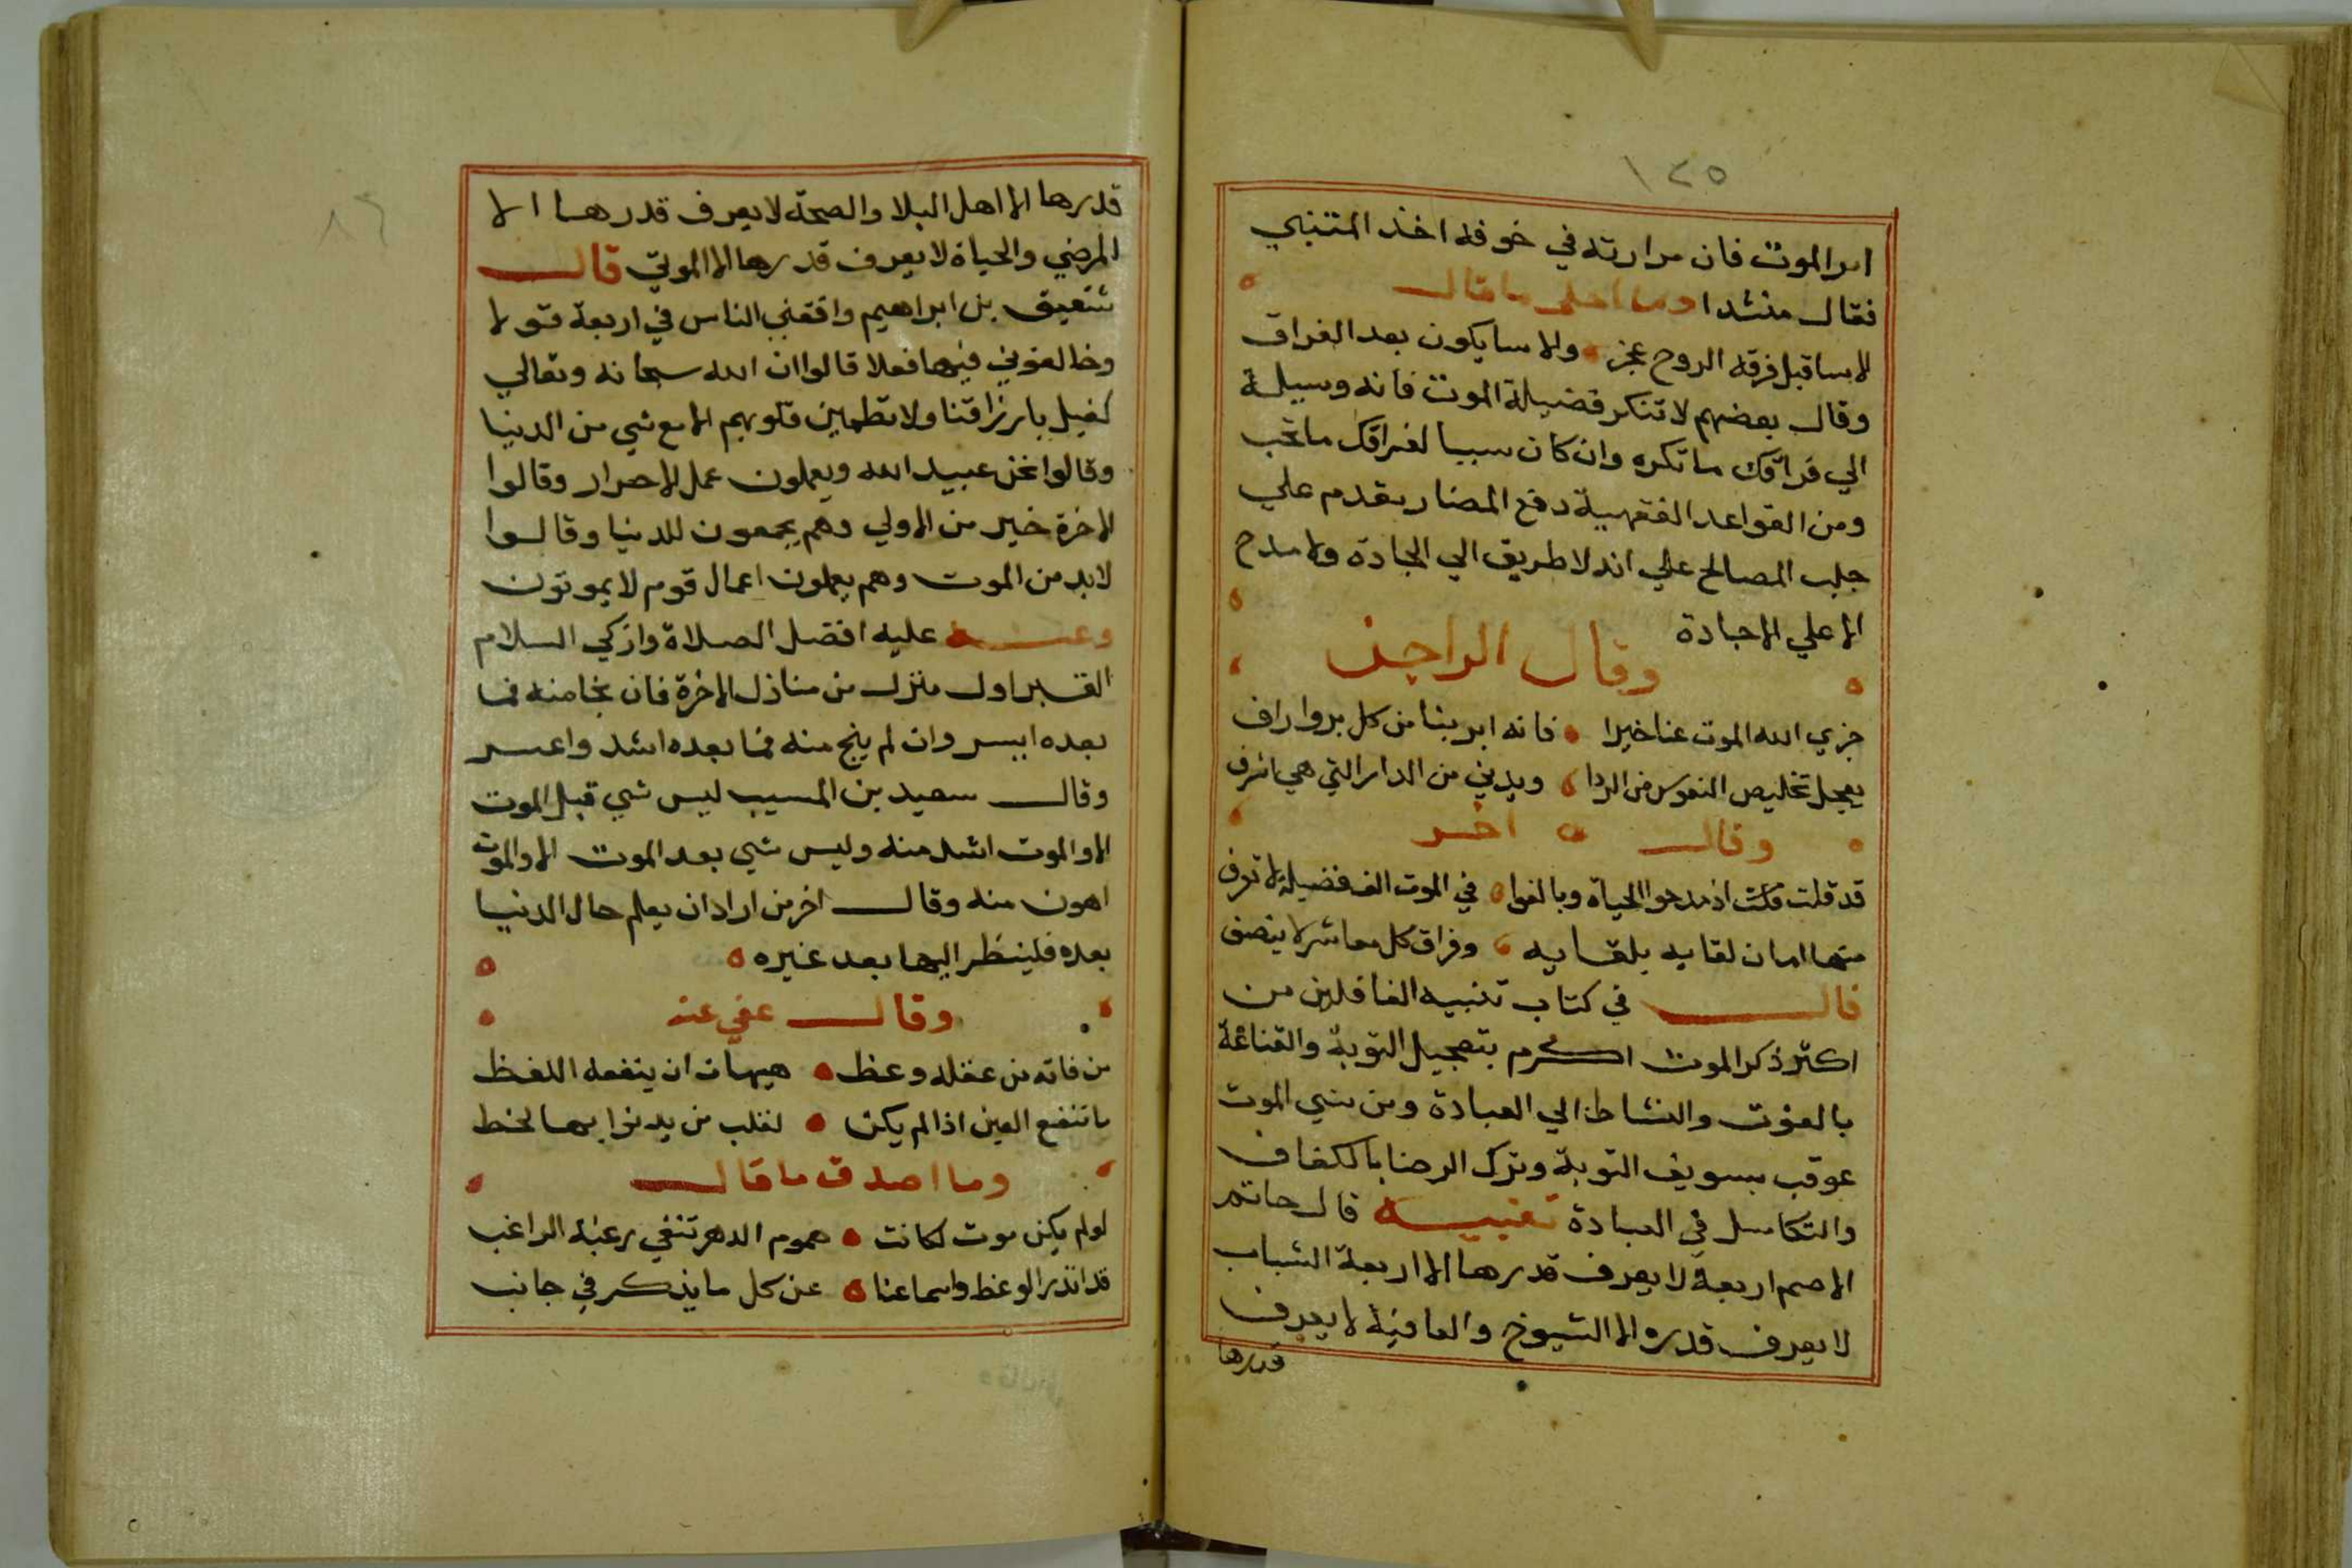 ١٢٥
امر الموت فان مرارته في خوفه اخذ المتنبي
فقال منشدا وما احلى ما قال
لاسا قبل فرقه الروح عجز والاسا يكون بعد الفراق
وقال بعضهم لا تنكر فضيلة الموت فانه وسيلة
الي فراقك ما تكره وان كان سببا لفراقك ما تحب
ومن القواعد الفقهية دفع المضار يقدم علي
جلب المصالح علي انه لا طريق الي الجادة ولا مدح
الا علي الاجادة
وقال الراجز
جزي الله الموت عنا خيرا فانه ابر بنا من كل بر واراف
يعجل تخليص النفوس من الردا ويدني من الدار التي هي اشرف
وقال اخر
قد قلت اذ مدحوا الحياة وبالغوا في الموت الف فضيلة لا تعرف
منها امان لقايه بلقايه وفراق كل معاشر لا ينصف
قال في كتاب تنبيه الغافلين من
اكثر ذكر الموت اكرم بتعجيل التوبة والقناعة
بالقوت والنشاط الي العبادة ومن نسي الموت
عوقب بسويف التوبة وترك الرضا بالكفاف
والتكاسل في العبادة تنبيه قال حاتم
الاصم اربعة لا يعرف قدرها الا اربعة الشباب
لا يعرف قدره الا الشيوخ والعافية لا يعرف
قدرها
٨٦
قدرها الا اهل البلا والصحة لا يعرف قدرها الا
المرضي والحياة لا يعرف قدرها الا الموتي قال
شقيق بن ابراهيم وافقني الناس في اربعة قولا
وخالفوني فيها فعلا قالوا ان الله سبحانه وتعالي
كفيل بارزاقنا ولا تطمين قلوبهم الا مع شي من الدنيا
وقالوا نحن عبيد الله ويعملون عمل الاحرار وقالوا
الاخرة خير من الاولي وهم يجمعون للدنيا وقالوا
لا بد من الموت وهم يعملون اعمال قوم لا يموتون
وعنه عليه افضل الصلاة وازكي السلام
القبر اول منزل من منازل الاخرة فان نجا منه فما
بعده ايسر وان لم ينج منه فما بعده اشد واعسر
وقال سعيد بن المسيب ليس شي قبل الموت
الا والموت اشد منه وليس شي بعد الموت الا والموت
اهون منه وقال اخر من اراد ان يعلم حال الدنيا
بعده فلينظر اليها بعد غيره
وقال عفي عنه
من فاته من عقله وعظ هيهات ان ينفعه اللفظ
ما تنفع العين اذا لم يكن لقلب من يدنوا بها لحظ
وما اصدق ما قال
لو لم يكن موت لكانت هموم الدهر تنفي رغبة الراغب
قد انذر الوعظ واسماعنا عن كل ما يذكر في جانب